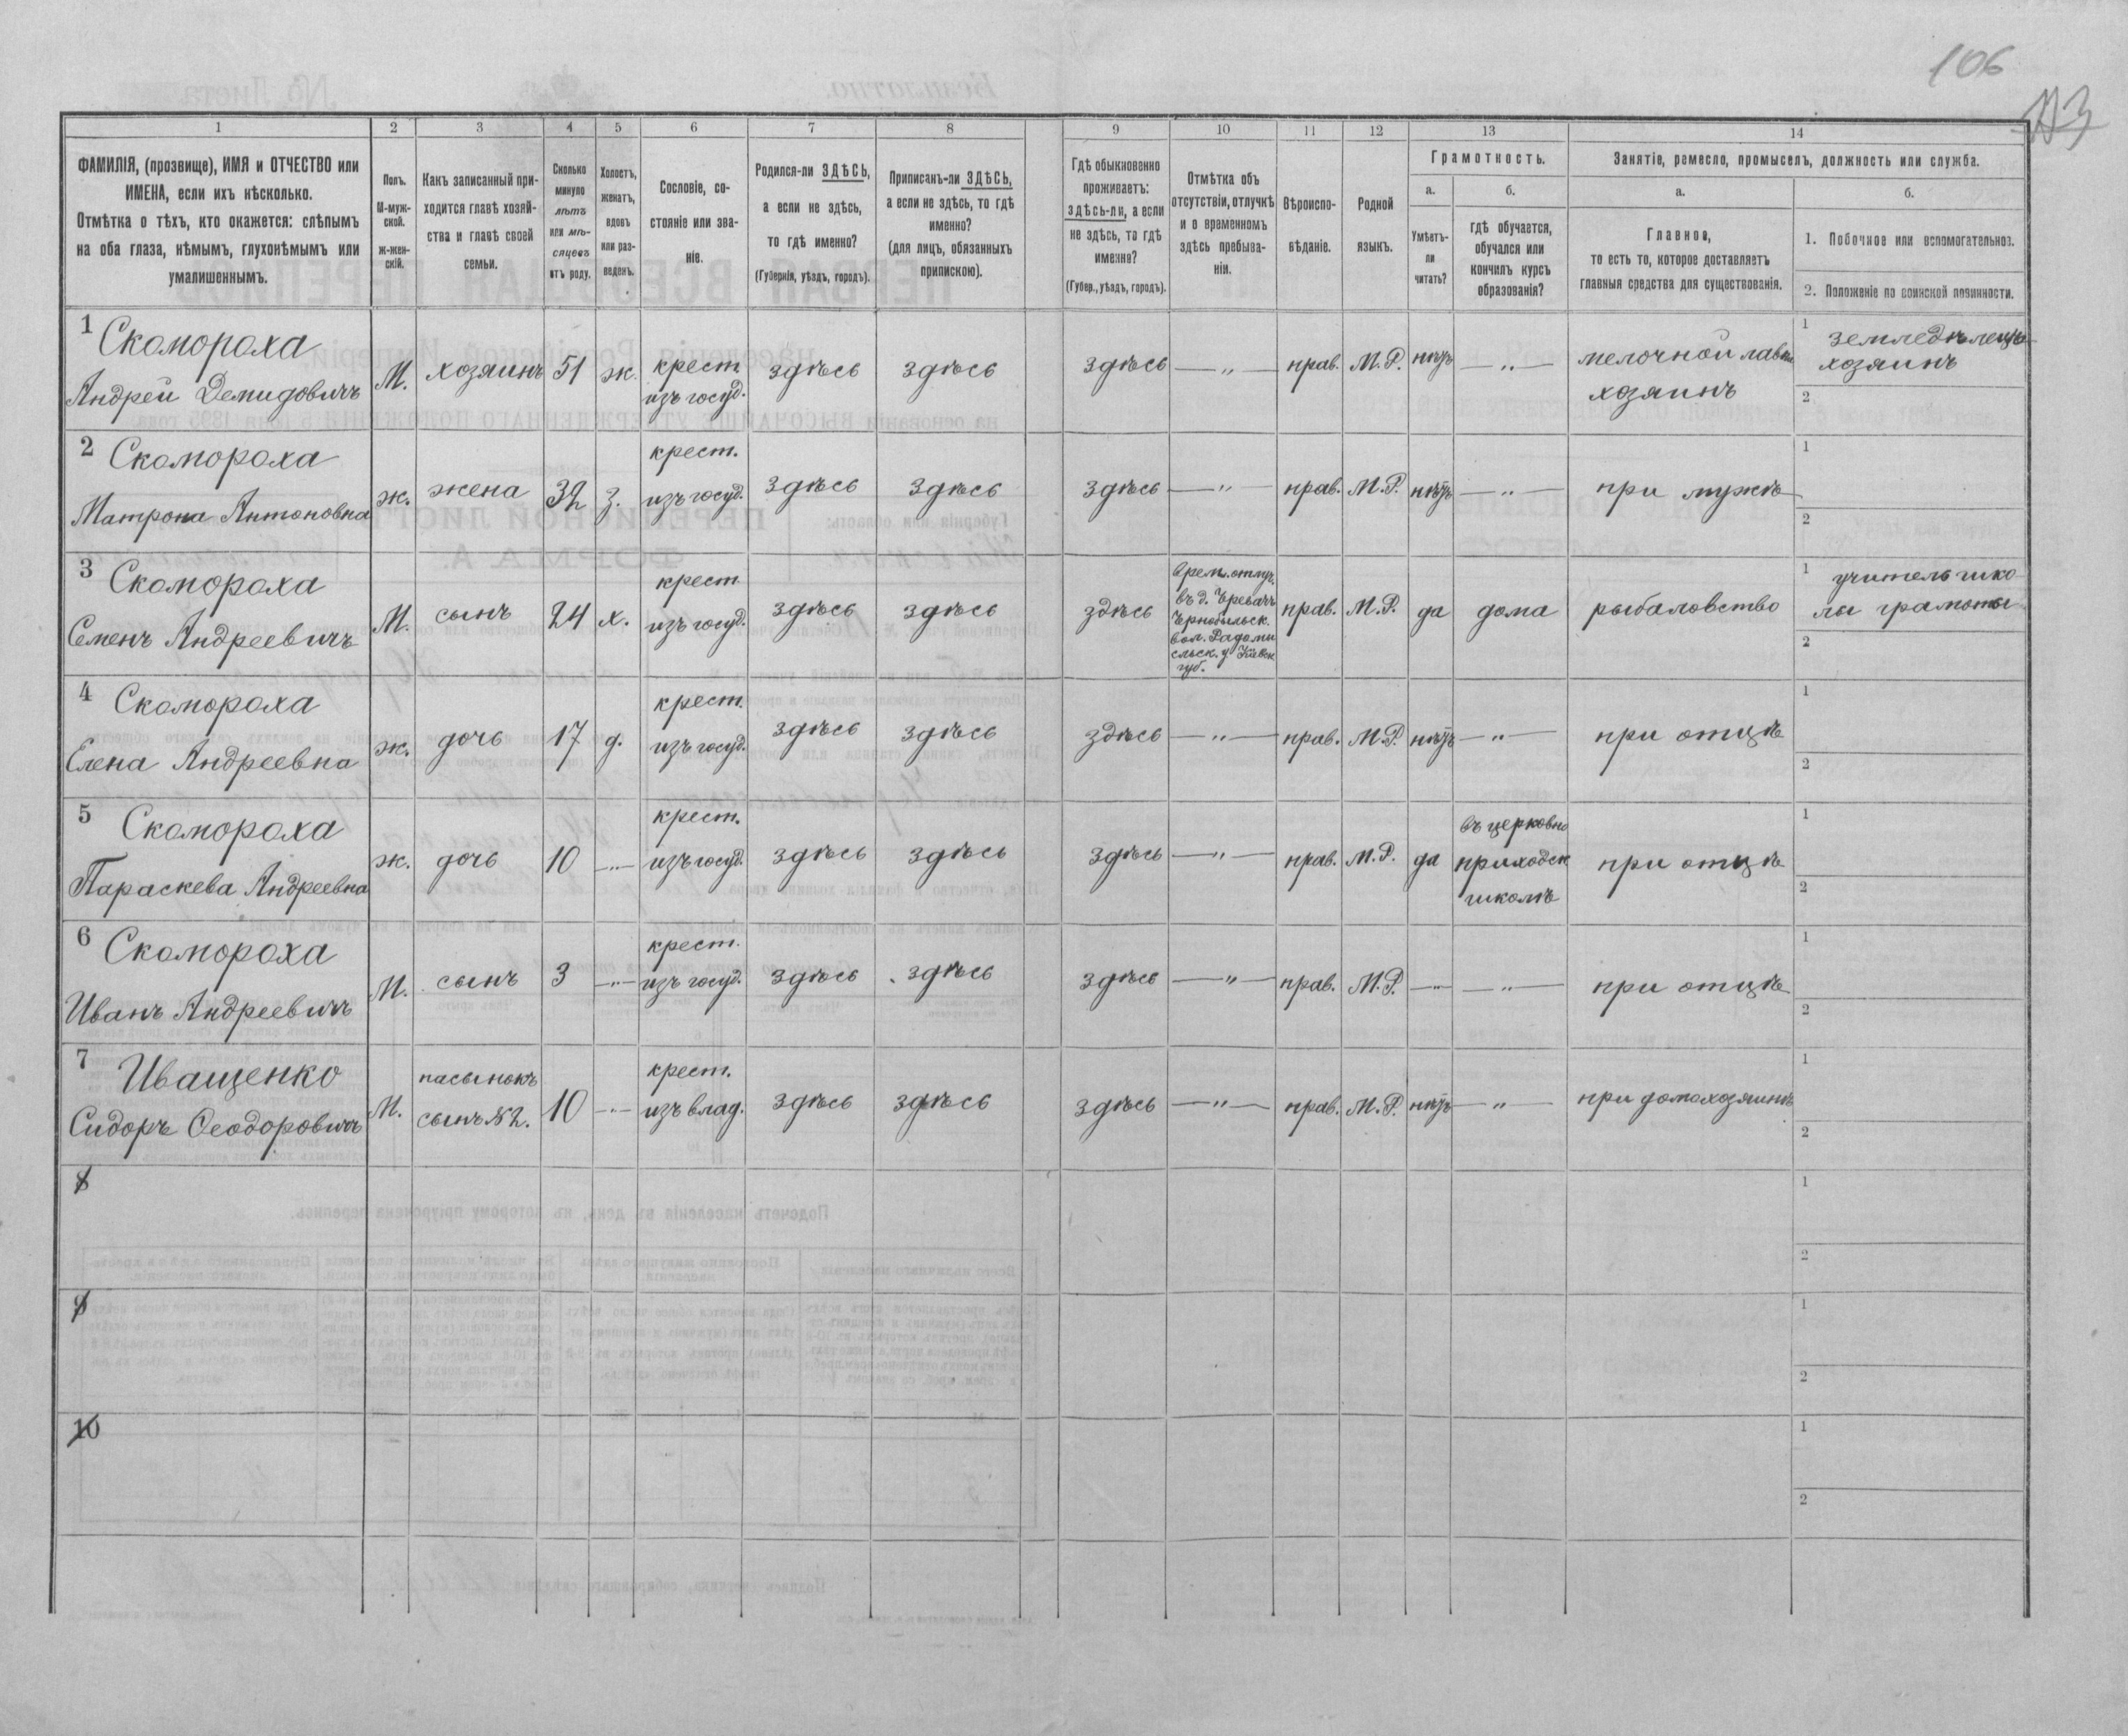 106
113
1
2
3
4
5
6
7
8
9
10
11
12
13
14
ФАМИЛІЯ, (прозвище), ИМЯ и ОТЧЕСТВО или
ИМЕНА, если ихъ нѣсколько.
Отмѣтка о тѣхъ, кто окажется: слѣпымъ
на оба глаза, нѣмымъ, глухонѣмымъ или
умалишеннымъ.
Полъ.
М-муж-
ской.
ж-жен-
скій.
Какъ записанный при-
ходится главѣ хозяй-
ства и главѣ своей
семьи.
Сколько
минуло
лѣтъ
или мѣ-
сяцевъ
отъ роду.
Холостъ,
женатъ,
вдовъ
или раз-
веденъ.
Сословіе, со-
стояніе или зва-
ніе.
Родился-ли ЗДѢСЬ,
а если не здѣсь,
то гдѣ именно?
(Губернія, уѣздъ, городъ).
Приписанъ-ли ЗДѢСЬ,
а если не здѣсь, то гдѣ
именно?
(для лицъ, обязанныхъ
припискою).
Гдѣ обыкновенно
проживаетъ:
здѣсь-ли, а если
не здѣсь, то гдѣ
именно?
(Губер., уѣздъ, городъ).
Отмѣтка объ
отсутствіи, отлучкѣ
и о временномъ
здѣсь пребыва-
ніи.
Вѣроиспо-
вѣданіе.
Родной
языкъ.
Грамотность.
а.
Умѣетъ-
ли
читать?
б.
гдѣ обучается,
обучался или
кончилъ курсъ
образованія?
Занятіе, ремесло, промыселъ, должность или служба.
а.
Главное,
то есть то, которое доставляетъ
главныя средства для существованія.
б.
1. Побочное или вспомогательное.
2. Положеніе по воинской повинности.
1 Скомороха
Андрей Демидовичъ
М.
хозяинъ
51
ж.
крест.
изъ госуд.
здѣсь
здѣсь
здѣсь
— " —
прав.
М.Р.
нѣтъ
— " —
мелочной лавки
хозяинъ
1 земледѣлецъ
хозяинъ
2
2 Скомороха
Матрона Антоновна
ж.
жена
32
з.
крест.
изъ госуд.
здѣсь
здѣсь
здѣсь
— " —
прав.
М.Р.
нѣтъ
— " —
при мужѣ
1
2
3 Скомороха
Семенъ Андреевичъ
М.
сынъ
24
х.
крест
изъ госуд.
здѣсь
здѣсь
здѣсь
врем. отлуч.
въ д. Черевачъ
Чернобыльск.
вол. Радомы
сльск. у Кіевск
губ.
прав.
М.Р.
да
дома
рыбаловство
1 учитель шко-
лы грамоты
2
4 Скомороха
Елена Андреевна
ж.
дочь
17
д.
крест.
изъ госуд.
здѣсь
здѣсь
здѣсь
— " —
прав.
М.Р.
нѣтъ
— " —
при отцѣ
1
2
5 Скомороха
Параскева Андреевна
ж.
дочь
10
— " —
крест.
изъ госуд.
здѣсь
здѣсь
здѣсь
— " —
прав.
М.Р.
да
въ церковно
приходск
школѣ
при отцѣ
1
2
6 Скомороха
Иванъ Андреевичъ
М.
сынъ
3
— " —
крест.
изъ госуд.
здѣсь
здѣсь
здѣсь
— " —
прав.
М.Р.
— " —
— " —
при отцѣ
1
2
7 Иващенко
Сидоръ Ѳеодоровичъ
М.
пасынокъ
сынъ №2.
10
— " —
крест.
изъ влад.
здѣсь
здѣсь
здѣсь
— " —
прав.
М.Р.
нѣтъ
— " —
при домохозяинѣ
1
2
8
1
2
9
1
2
10
1
2